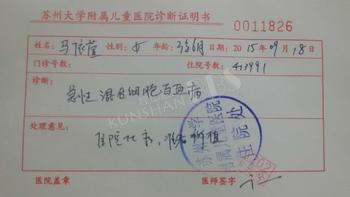 苏州大学附属儿童医院诊断证明书
0011826
姓名 马依蕴 性别 女 年龄 3岁6月 2015年09月18日
门诊号数: 住院号数: 413991
诊断:
急性混合细胞白血病
处理意见:
住院化疗,
医院盖章 医师签字
KUNSHAN
住院处